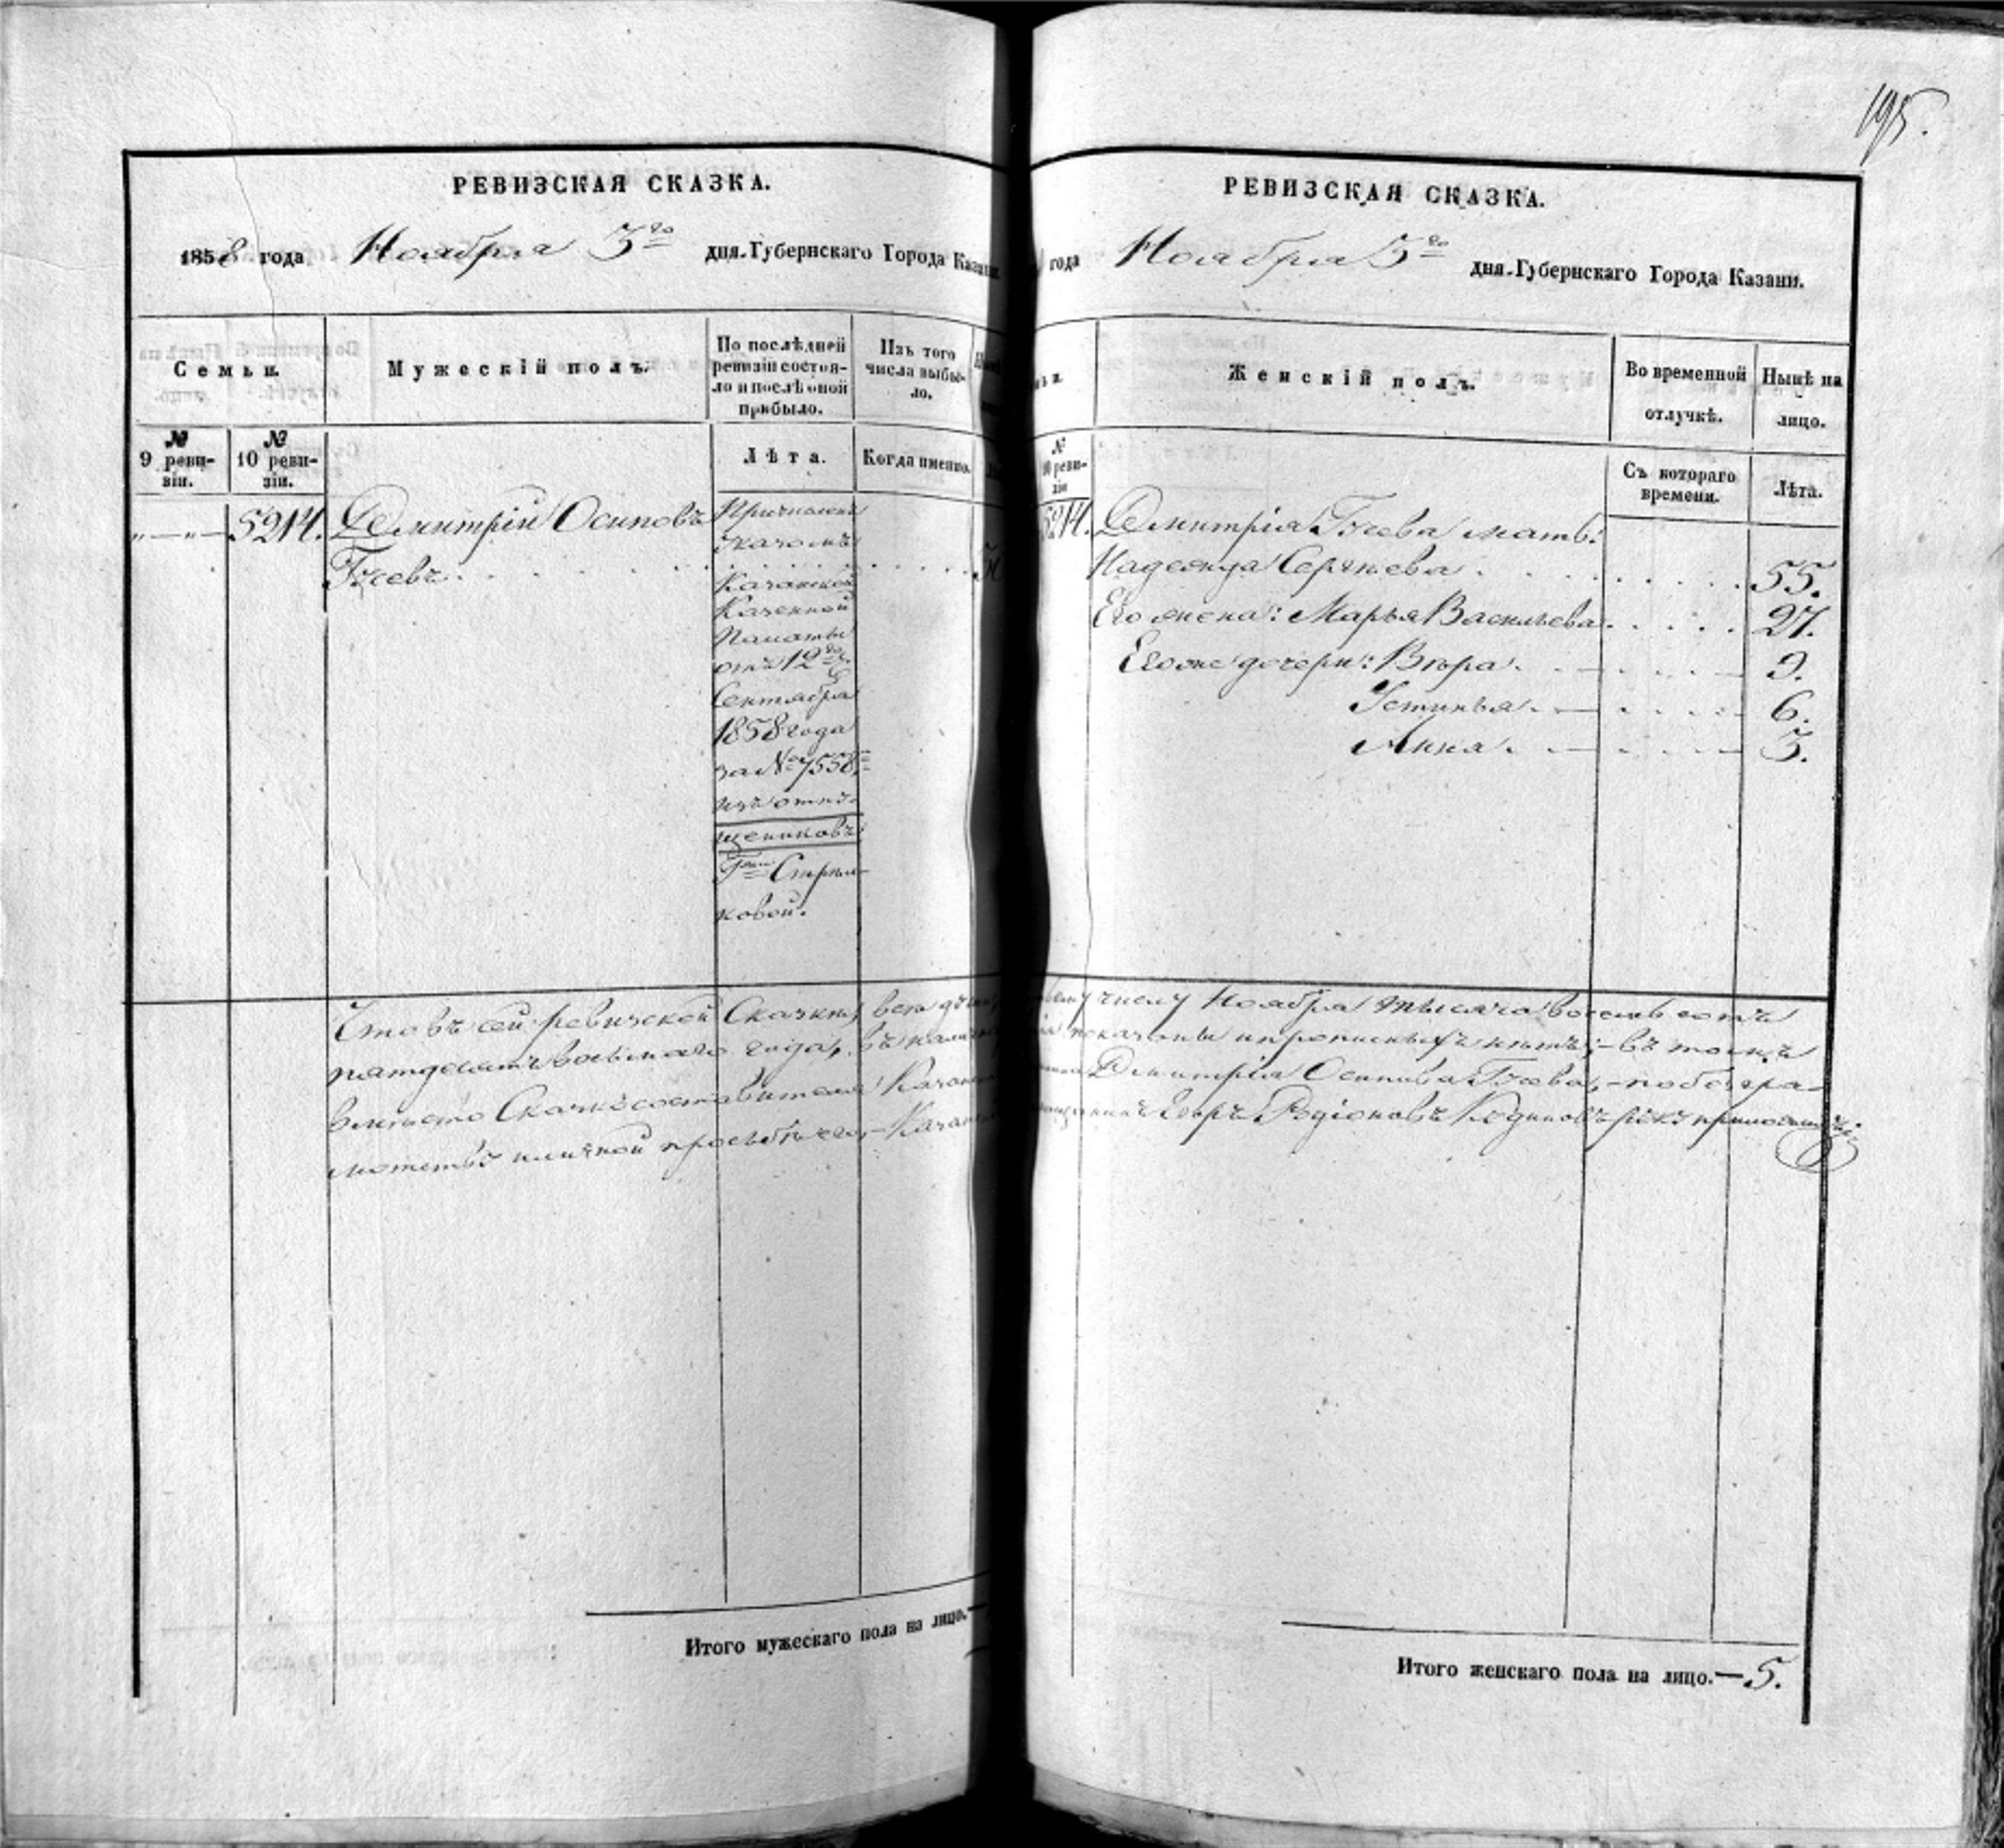 195.
РЕВИЗСКАЯ СКАЗКА.
1858 года Ноября 3го дня. Губернскаго Города Казани
Семьи.
Мужескій полъ.
По послѣдней ревизіи состоя-
ло и послѣ оной
прибыло.
Изъ того
числа выбы-
ло.
№
9 реви-
зіи.
№
10 реви-
зіи.
Лѣта.
Когда именно.
„—„— 5214. Дмитрій Осиповъ
Гусевъ
Причисленъ
Указомъ
Казанской
Казенной
Палаты
отъ 12го
Сентября
1858 года
за № 7558
изъ отпу-
щениковъ
Гжи Стрѣл-
ковой.
Что въ сей ревизской Сказкѣ, все души,
пятдесятъ восьмаго года, въ налич
вмѣсто Сказкосоставителя Казан
мотству и личной прозьбѣ его,—Казан
Итого мужескаго пола на лицо.—
РЕВИЗСКАЯ СКАЗКА.
года Ноября 3го дня. Губернскаго Города Казани.
Женскій полъ.
Во временной
отлучкѣ.
Нынѣ на
лицо.
№
10 реви-
зіи
Съ котораго
времени.
Лѣта.
5214. Дмитрія Гусева мать:
Надежда Сергѣева 55.
Его жена: Марья Васильева 27.
Его же дочери: Вѣра 9.
Устинья 6.
Анна 3.
числу Ноября тысяча восемь сотъ
показаны и прописныхъ нѣтъ;—въ томъ
Дмитрія Осипова Гусева,—по безгра-
Егоръ Родіоновъ руку приложилъ
Итого женскаго пола на лицо.—5.